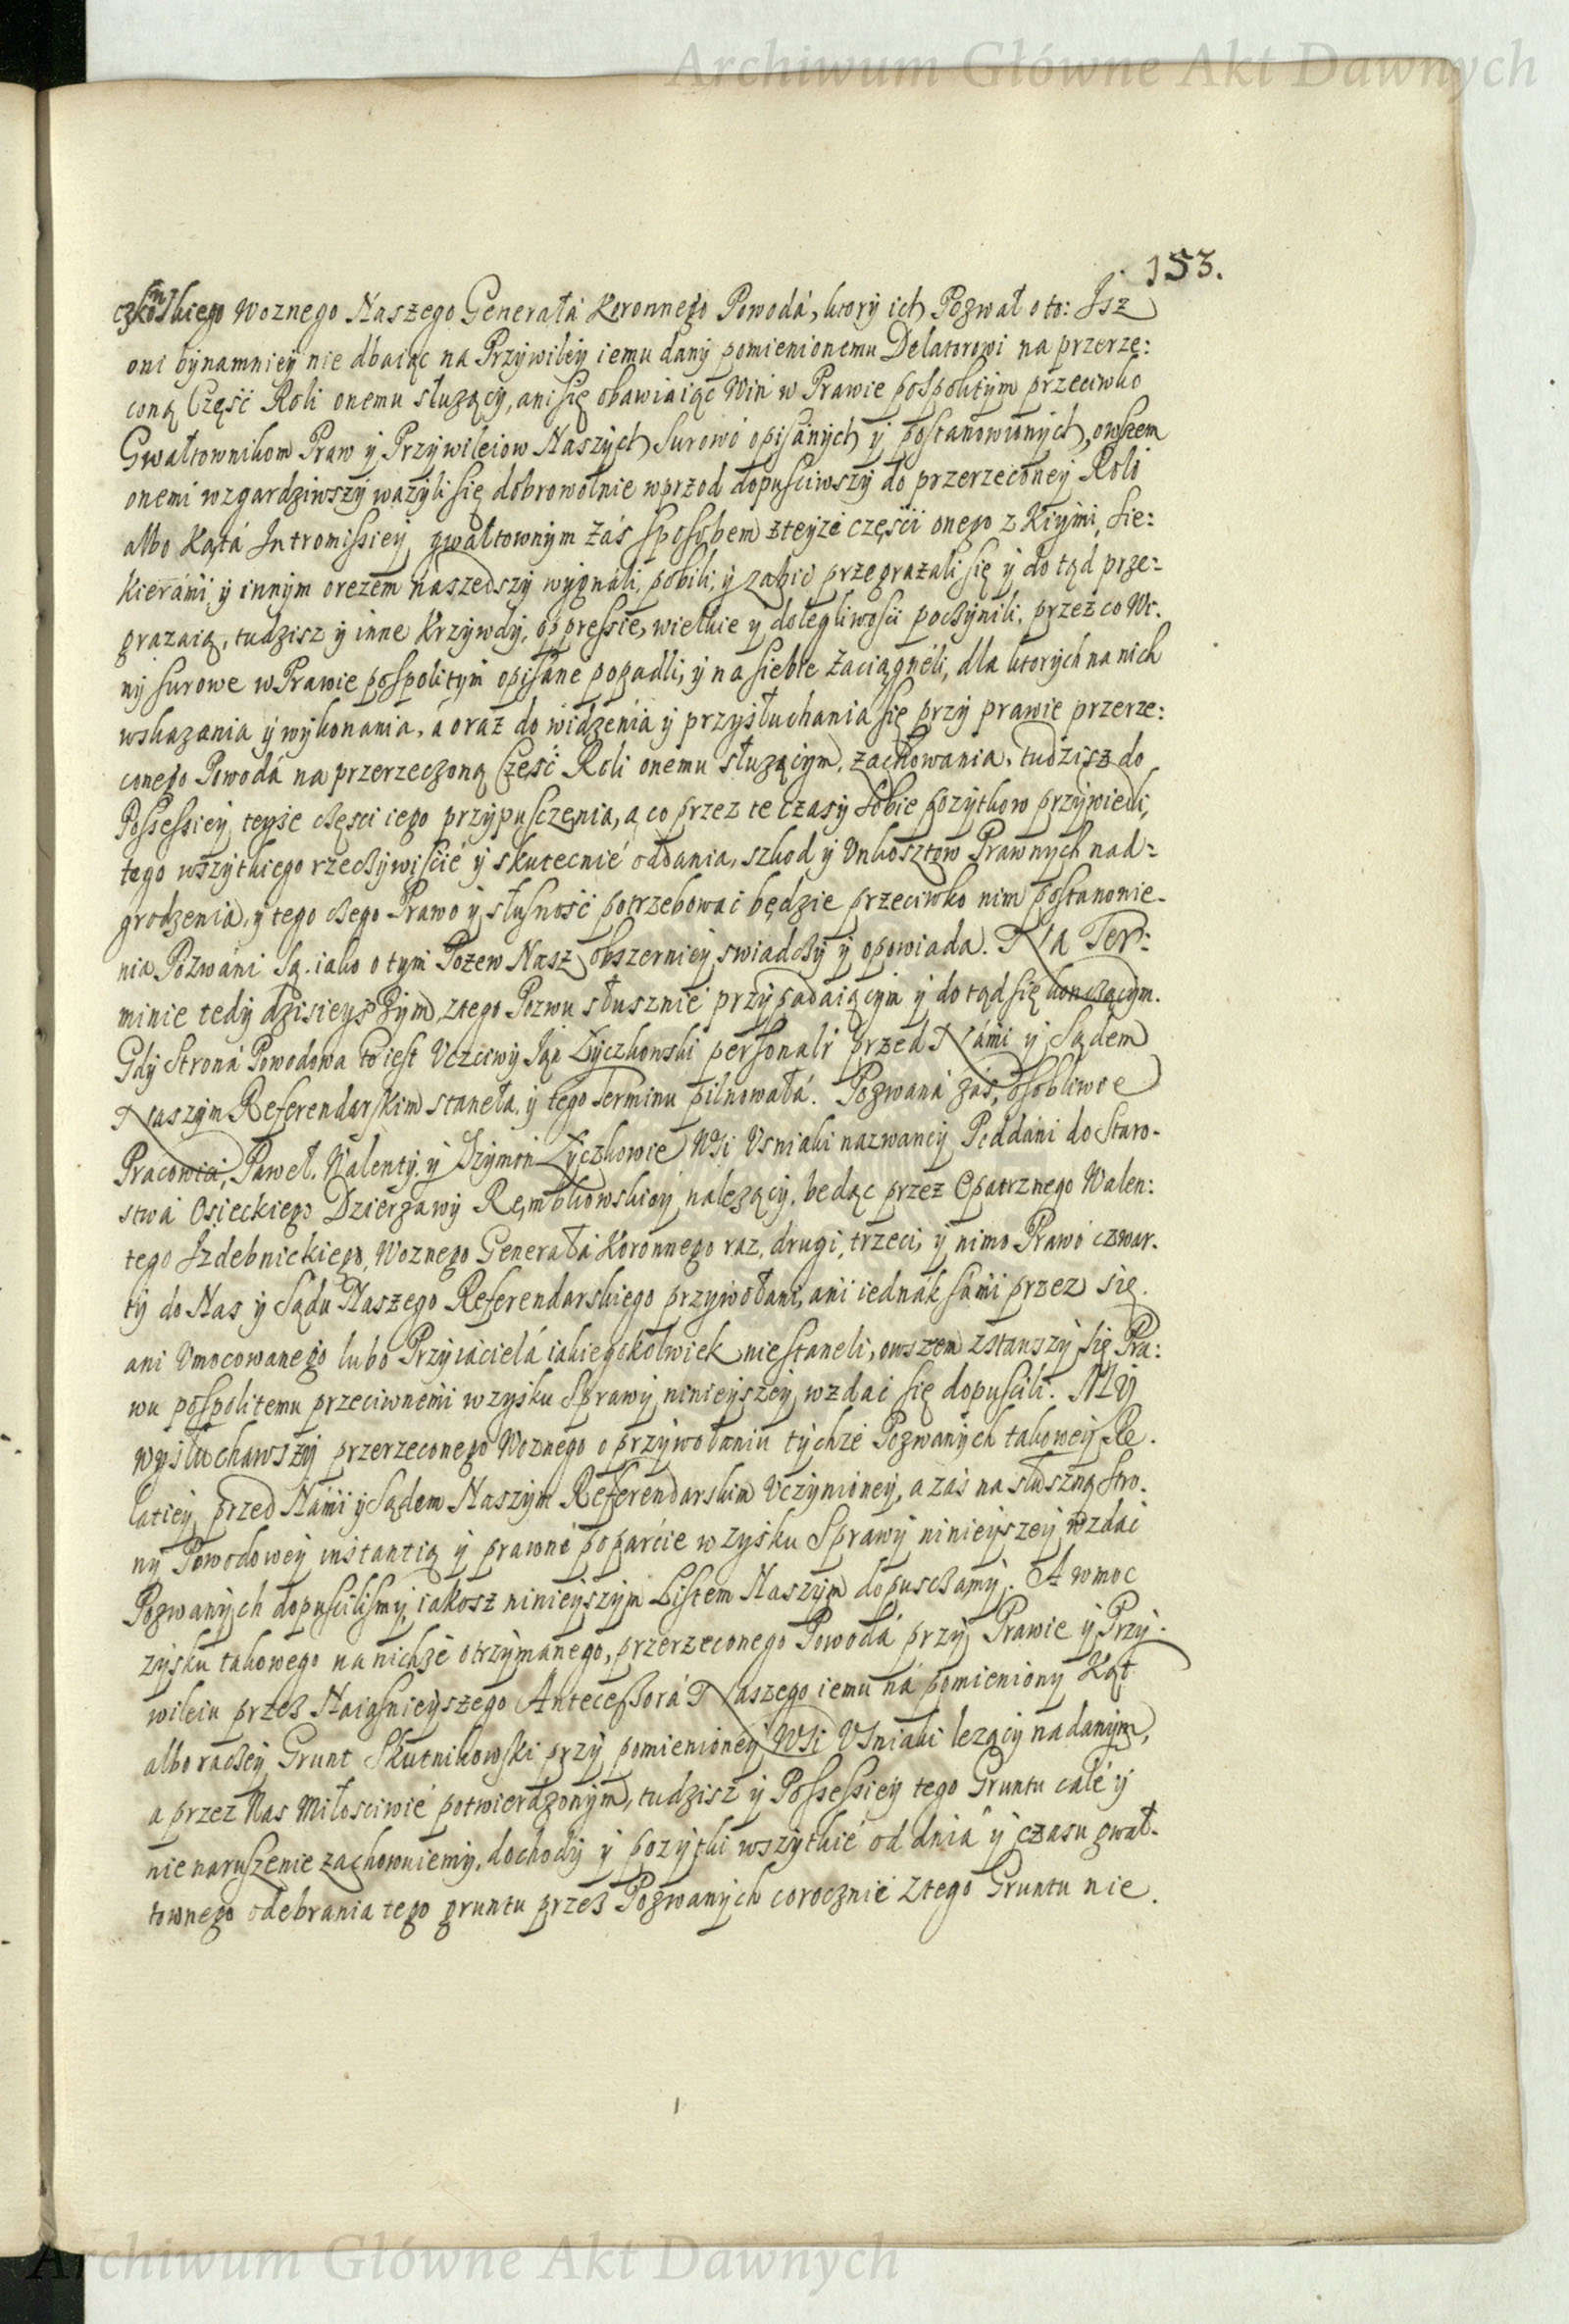 Archiwum Główne Akt Dawnych
153.
Woznego Naszego Generała Koronnego Powodá, ktory ich Pozwał o to: Isz
oni bynamniey nie dbaiąc na Przywiley iemu dany pomienionemu Delatorowi na przerze:
coną Część Roli onemu służący, ani się obawiaiąc Win w Prawie pospolitym przeciwko
Gwałtownikom Praw y Przywileiow Naszych surowo opisanych y postanowionych, owszem
onemi wzgardziwszy ważyli się dobrowolnie wprzod dopusciwszy do przerzeconey Roli
albo Kąta Intromissiey gwałtownym záś sposobem zteyże części onego z Kiymi, Sie:
kierámi y innym orezem naszedszy wygnáli, pobili, y zabić przegrażali się y do tąd prze:
grazaią, tudzisz y inne Krzywdy, oppressie, wielkie y dolegliwości poczynili, przez co Wi.
ny surowe w Prawie pospolitym opisane popadli, y na siebie zaciągnęli, dla ktorych na nich
wskazania y wykonania, á oraz do widzenia y przysłuchania się przy prawie przerze:
conego Powodá na przerzeczoną Cześć Roli onemu służącym, zachowania, tudzisz do
Possessiey teyże części iego przypusczenia, a co przez te czasy sobie pozytkow przywiedli,
tego wszytkiego rzeczywiście y skutecnie oddania, szkod y Unkosztow Prawnych nad:
grodzenia, y tego czego Prawo y słusność potrzebować będzie przeciwko nim postanowie-
nia Pozwáni Są, iako o tym Pozew Nasz obszerniey swiadczy y opowiada. Na Ter:
minie tedy dzisieyszym, z tego Pozwu słusznie przypadaiącym y do tąd się konczącym.
Gdy Strona Powodowa to iest Uczciwy Ian Zyczkowski personalr przed Námi y Sądem
Naszym Referendarskim stanęła, y tego Terminu pilnowałá. Pozwaná záś, osobliwie
Pracowici, Paweł, Walenty, y Szymon Zyczkowie Wsi Usniaki nazwaney Poddani do Staro-
stwá Osieckiego Dzierżawy Rembkowskiey należący, bedąc przez Opatrznego Walen:
tego Izdebnickiego, Woznego Generała Koronnego raz, drugi, trzeci, y nimo Prawo czwar.
ty do Nas y Sądu Naszego Referendarskiego przywołani, ani iednák sámi przez się.
ani Umocowanego lubo Przyiacielá iakiegokolwiek nie staneli, owszem zstawszy się Pra:
wu pospolitemu przeciwnemi w zysku Sprawy ninieyszey wzdać się dopuscili. My
wysłuchawszy przerzeconego Woznego o przywołaniu tychże Pozwanych takowey Re.
latiey przed Námi y Sądem Naszym Referendarskim Uczynioney, a zaś na słuszną Stro.
ny Powodowey instantią y prawne poparcie w zysku Sprawy ninieyszey wzdać
Pozwanych dopuscilismy, iakosz ninieyszym Listem Naszym dopusczamy. A w moc
zysku takowego na nichże otrzymanego, przerzeconego Powodá przy Prawie y Przy.
wileiu przez Naiaśnieyszego Antecessorá Naszego iemu na pomieniony Kąt
albo raczey Grunt Skutnikowski przy pomienioney Wsi Usniaki lezący nadanym,
a przez Nas Miłosciwie potwierdzonym, tudzisz y Possessiey tego Gruntu całe y
nienaruszenie zachowuiemy, dochody y pozytki wszytkie od dnia y czasu gwał-
townego odebrania tego gruntu przez Pozwanych corocznie z tego Gruntu nie.
Archiwum Główne Akt Dawnych